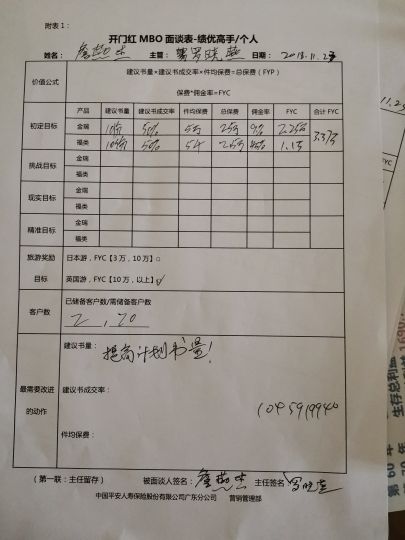 附表1：
开门红 MBO 面谈表-绩优高手/个人
姓名： 主管： 日期：2018.11.2
建议书量×建议书成交率×件均保费=总保费（FYP）
价值公式
保费*佣金率=FYC
产品 建议书量 建议书成交率 件均保费 总保费 佣金率 FYC 合计 FYC
初定目标 金瑞 10份 50% 5万 25万 9% 2.25万
福类 50% 1.1万
挑战目标 金瑞
福类
现实目标 金瑞
福类
精准目标 金瑞
福类
旅游奖励 日本游，FYC【3万，10万】□
目标 英国游，FYC【10万，以上】
客户数 已储备客户数/需储备客户数
2，20
建议书量：提高计划书量！
最需要改进 建议书成交率：
的动作
件均保费：
（第一联：主任留存） 被面谈人签名： 主任签名
中国平安人寿保险股份有限公司广东分公司 营销管理部
11.23
生存总利益
第 60 年
第 70 年